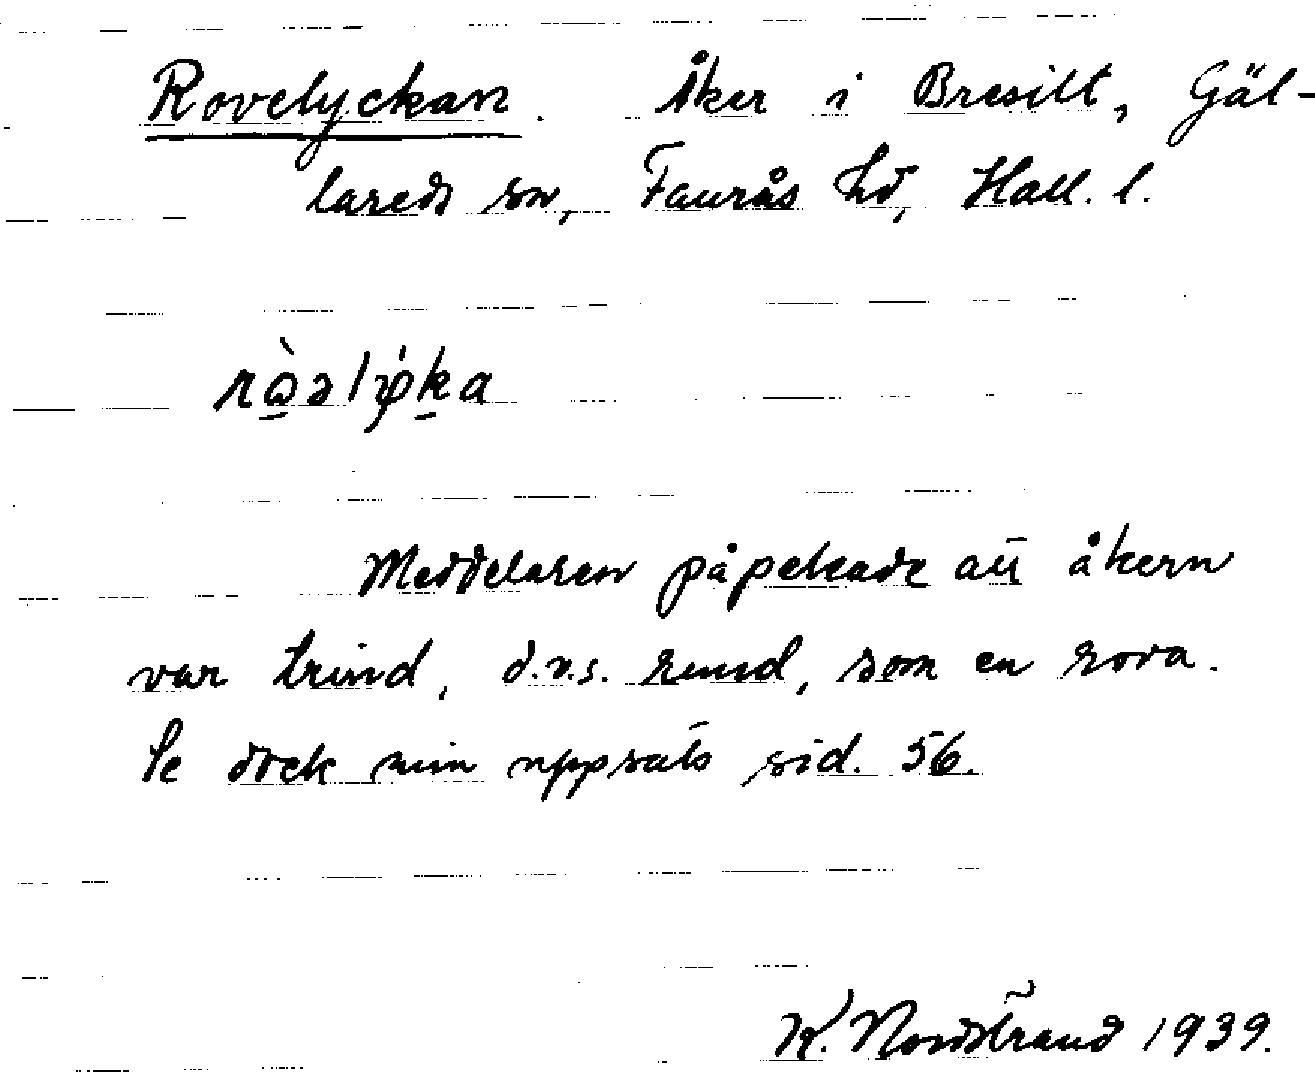 Rovelyckan. Åker i Bresilt, Gäl-
lareds sn, Faurås hd, Hall. l.
rὼ̱əlφ́ḵa
Meddelaren påpekade att åkern
var trind, d.v.s. rund, som en rova.
Se dock min uppsats sid. 56.
K. Nordstrand 1939.